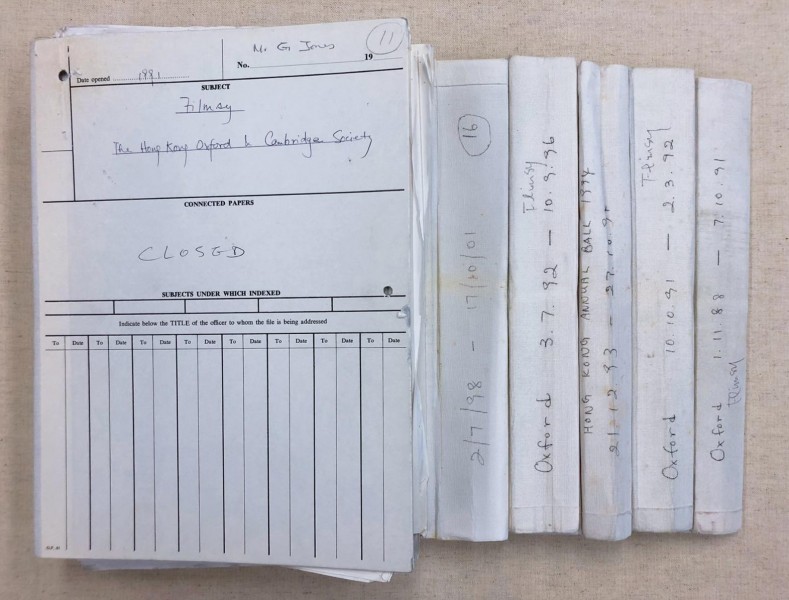 Mr G Jones
11
Date opened 1991
No. 19
SUBJECT
Filmsy
The Hong Kong Oxford & Cambridge Society
CONNECTED PAPERS
CLOSED
SUBJECTS UNDER WHICH INDEXED
Indicate below the TITLE of the officer to whom the file is being addressed
To Date To Date To Date To Date To Date To Date To Date To Date
16
2/7/98 - 17/10/01
Flimsy
Oxford 3.7.92 - 10.9.96
HONG KONG ANNUAL BALL 1994
21.12.93 - 27.10.94
Flimsy
Oxford 10.10.91 - 2.3.92
Oxford 1.11.88 - 7.10.91
Flimsy